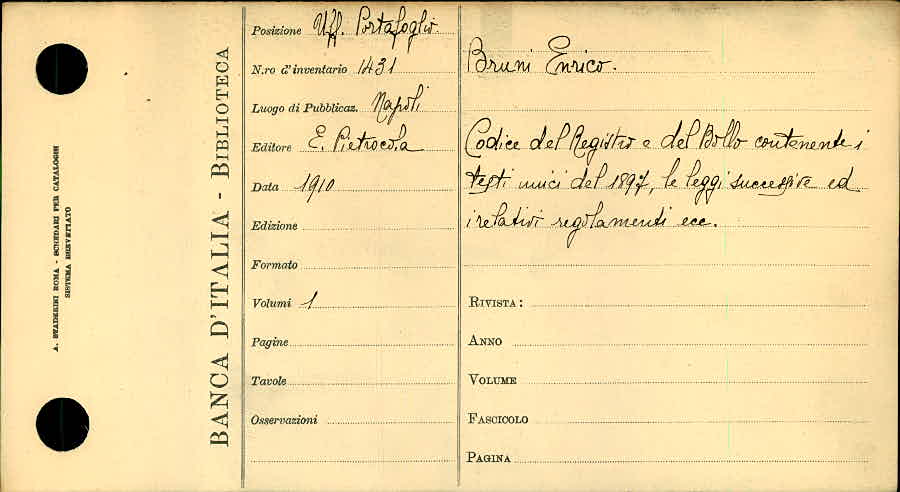 A. STADERINI ROMA - SCHEDARI PER CATALOGHI
SISTEMA BREVETTATO
BANCA D'ITALIA - BIBLIOTECA
Posizione Uff. Portafoglio.
N.ro d'inventario 1431
Luogo di Pubblicaz. Napoli
Editore E. Pietrocola
Data 1910
Edizione
Formato
Volumi 1
Pagine
Tavole
Osservazioni
Bruni Enrico.
Codice del Registro e del Bollo contenente i
testi unici del 1897, le leggi successive ed
i relativi regolamenti ecc.
RIVISTA:
ANNO
VOLUME
FASCICOLO
PAGINA